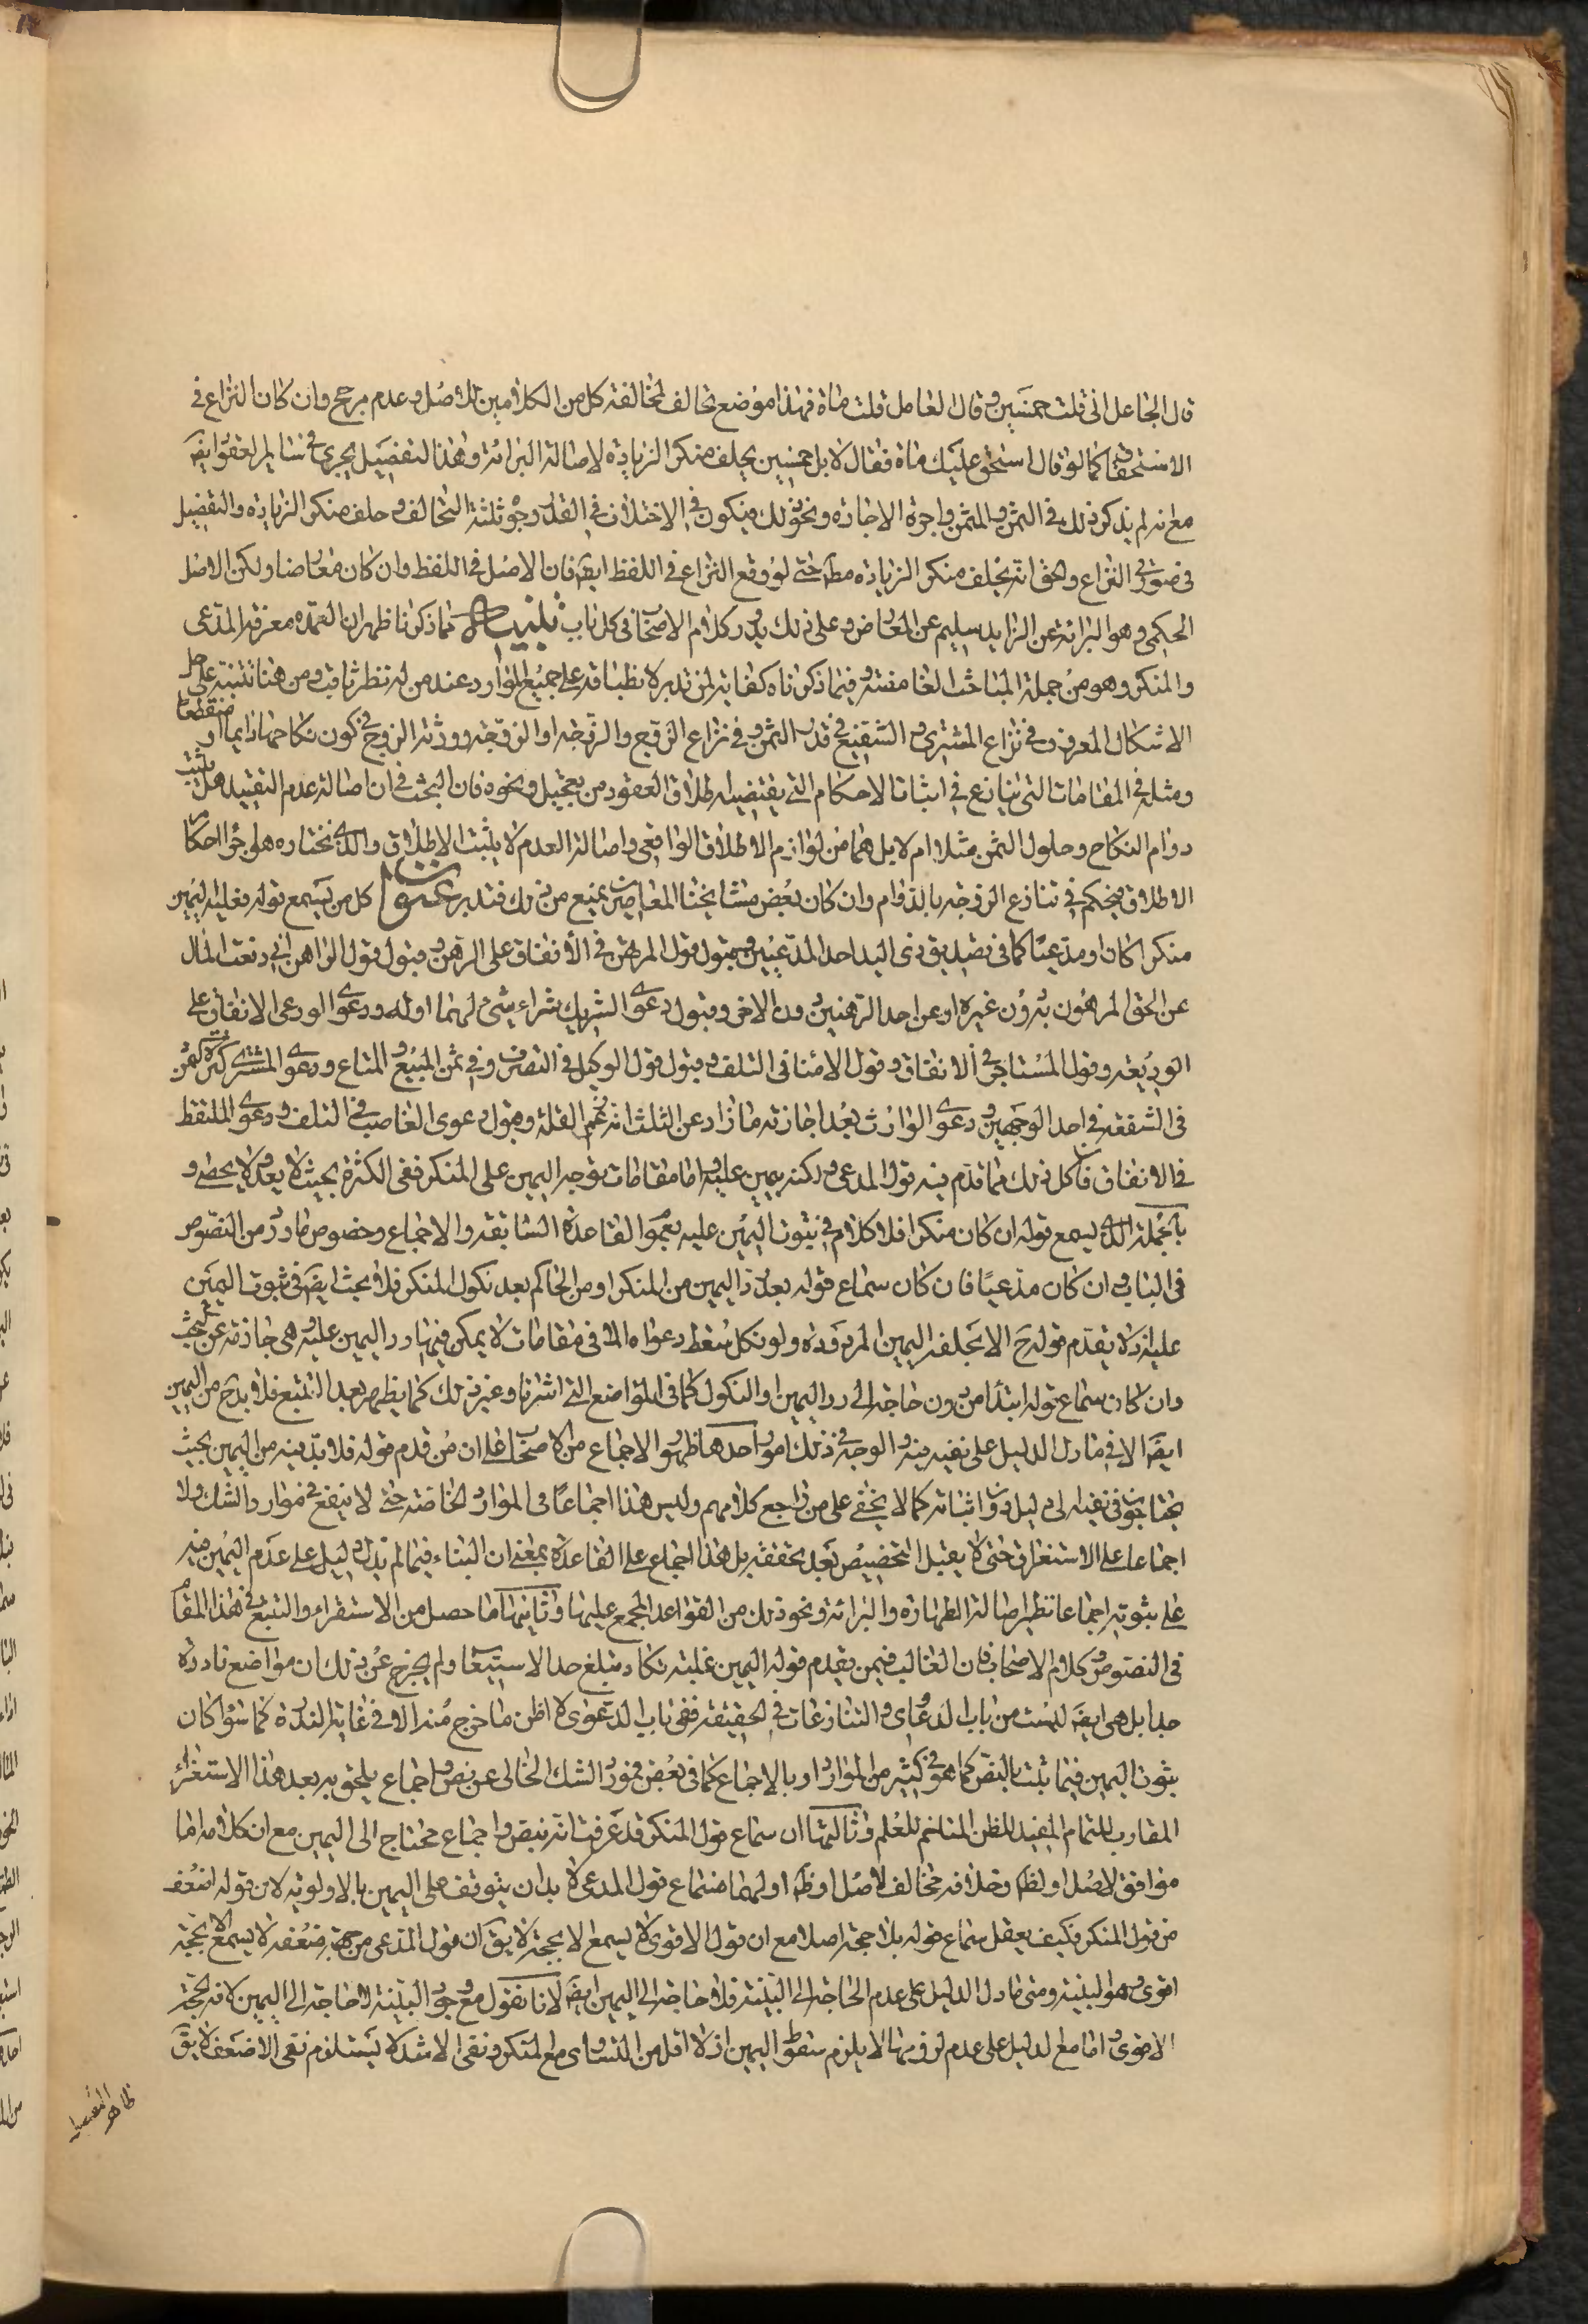 قال الجاعل انى قلت خمسين و قال العامل قلت ماة فهذا موضع تحالف لمخالفة كل من الكلامين للاصل و عدم مرجح وان كان النزاع فى
الاستحقاق كما لو قال استحق عليك ماة فقال لا بل خمسين يحلف منكر الزيادة لاصالة البرائة و هذا التفصيل يجرى فى سائر العقود ايضا
مع انه لم يذكر ذلك فى الثمن و المثمن و اجرة الاجارة و نحو ذلك فيكون فى الاختلاف فى القدر وجوه ثلثة التحالف و حلف منكر الزيادة والتفصيل
فى صورتى النزاع والحق انه يحلف منكر الزيادة مط حتى لو وقع النزاع فى اللفظ ايضا فان الاصل فى اللفظ وان كان معارضا ولكن الاصل
الحكمى وهو البرائة عن الزايد سليم عن المعارض وعلى ذلك يدور كلام الاصحاب فى كل باب تنبيه مما ذكرنا ظهر ان العمدة معرفة المدعى
والمنكر وهو من جملة المباحث الغامضة و فيما ذكرناه كفاية لمن تدبر لانطباقه على جميع الموارد عند من له نظر ثاقب و من هنا تتنبه على حل
الاشكال المعروف فى نزاع المشترى و الشفيع فى قدر الثمن و فى نزاع الزوج والزوجة او الزوجة و ورثة الزوج فى كون نكاحها دايما او منقطعا
ومثله فى المقامات التى يتنازع فى اثبات الاحكام التى يقتضيها اطلاق العقود من تعجيل و نحوه فان البحث فى ان اصالة عدم التقييد هل يثبت
دوام النكاح وحلول الثمن مثلا ام لا بل هما من لوازم الاطلاق الواقعى و اصالة العدم لا يثبت الاطلاق والذى نختاره هو اجراء احكام
الاطلاق فيحكم فى تنازع الزوجة بالدوام وان كان بعض مشايخنا المعاصرين يمنع من ذلك فتدبر عنوان كل من يسمع قوله فعليه اليمين
منكرا كان او مدعيا كما فى تصديق ذى اليد احد المدعيين و قبول قول المرتهن فى الانفاق على الرهن و قبول قول الراهن انى دفعت المال
عن الحق المرهون به دون غيره او عن احد الرهنين دون الاخر و قبول دعوى الشريك شراء شئ لهما او له و دعوى الودعى الانفاق على
الوديعة و قول المستاجر فى الانفاق و قول الامناء فى التلف و قبول قول الوكيل فى التصرف و فى ثمن المبيع و المتاع و دعوى المشترى كثرة الثمن
فى الشفعة فى احد الوجهين و دعوى الوارث بعد اجازته ما زاد عن الثلث انه زعم القلة و قبول دعوى الغاصب فى التلف و دعوى الملتقط
فى الانفاق فان كل ذلك مما قدم فيه قول المدعى و لكنه بيمين عليه و اما مقامات توجه اليمين على المنكر ففى الكثرة بحيث لا يعد و لا يحصى و
بالجملة الذى يسمع قوله ان كان منكرا فلا كلام فى ثبوت اليمين عليه بعموم القاعدة السابقة والاجماع وخصوص ما ورد من النصوص
فى الباب و ان كان مدعيا فان كان سماع قوله بعد رد اليمين من المنكر او من الحاكم بعد نكول المنكر فلا بحث ايضا فى ثبوت اليمين
عليه اذ لا يقدم قوله ح الا بحلفه اليمين المردودة ولو نكل سقط دعواه الا فى مقامات لا يمكن فيها رد اليمين عليه و هى خارجة عن البحث
وان كان سماع قوله ابتدأ من دون حاجة الى رد اليمين او النكول كما فى المواضع التى اشرنا و غير ذلك كما يظهر بعد التتبع فلابد ح من اليمين
ايضا الا فيما دل الدليل على نفيه فيه والوجه فى ذلك امور احدها ظهور الاجماع من الاصحاب على ان من قدم قوله فلا بد فيه من اليمين بحيث
يحتاجون فى نفيه الى دليل دون اثباته كما لا يخفى على من راجع كلامهم وليس هذا اجماعا فى الموارد الخاصة حتى لا ينفع فى موارد الشك ولا
اجماعا على الاستغراق حتى لا يقبل التخصيص بعد تحققه بل هذا اجماع على القاعدة بمعنى ان البناء فيما لم يدل دليل على عدم اليمين فيه
على ثبوته اجماعا نظير اصالة الطهارة والبرائة و نحو ذلك من القواعد المجمع عليها و ثانيها ما حصل من الاستقراء والتتبع فى هذا المقام
فى النصوص و كلام الاصحاب فان الغالب فيمن يقدم قوله اليمين غلبة تكاد تبلغ حد الاستيعاب ولم يخرج عن ذلك ان مواضع نادرة
جدا بل هى ايضا ليست من باب الدعاوى و التنازعات فى الحقيقة ففى باب الدعوى لا اظن ما خرج منه الا فى غاية الندرة كما سواء كان
ثبوت اليمين فيما ثبت بالنص كما هو فى كثير من الموارد او بالاجماع كما فى بعض فمورد الشك الخالى عن نص و اجماع يلحق به بعد هذا الاستغراء
المقارب للتمام المفيد للظن المتاخم للعلم و ثالثها ان سماع قول المنكر قد عرفت انه بنص و اجماع محتاج الى اليمين مع ان كلامه اما
موافق للاصل او لظ و خلافه مخالف لاصل او ظ او لهما فسماع قول المدعى لا بد ان يتوقف على اليمين بالاولوية لان قوله اضعف
من قول المنكر فكيف يعقل سماع قوله بلا حجة اصلا مع ان قول الاقوى لا يسمع الا بحجة لا يق ان قول المدعى من جهة ضعفه لا يسمع الا بحجة
اقوى و هو البينة و متى ما دل الدليل على عدم الحاجة الى البينة فلا حاجة الى اليمين ايضا لانا نقول مع وجود البينة لا حاجة الى اليمين لانه الحجة
الاقوى و اما مع الدليل على عدم لزومها لا يلزم سقوط اليمين اذ لا اقل من التساوى مع المنكر و نفى الاشد لا يستلزم نفى الاضعف لا يق